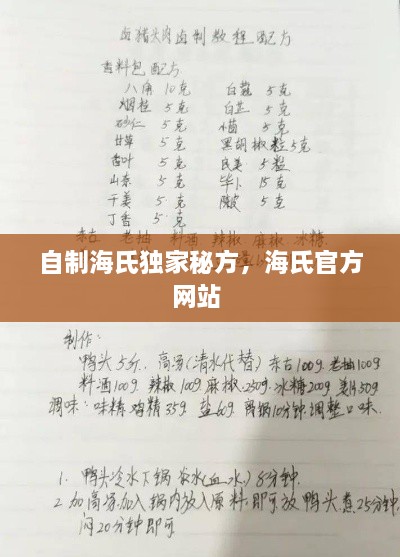 卤猪头肉卤制教程配方
香料包配方
八角 10克 白蔻 5克
烟桂 5克 白芷 5克
砂仁 5克 小茴 5克
甘草 5克 黑胡椒粒5克
香叶 5克 良姜 5粒
山奈 5克 毕卜 15克
干姜 5克 陈皮 5克
丁香 5克
老抽 料酒 辣椒 麻椒 冰糖
自制海氏独家秘方，海氏官方
网站
制作：
鸭头5斤、高汤(清水代替) 东古100g 老抽100g
料酒100g 辣椒100g 麻椒250g 冰糖200g 姜片50g
调味：味精 鸡精35g 盐60g 离锅10分钟调整口味.
1. 鸭头冷水下锅 汆水(血水) 8分钟.
2 加高汤加入锅内放入原料即可放 鸭头煮25分钟
闷20分钟即可